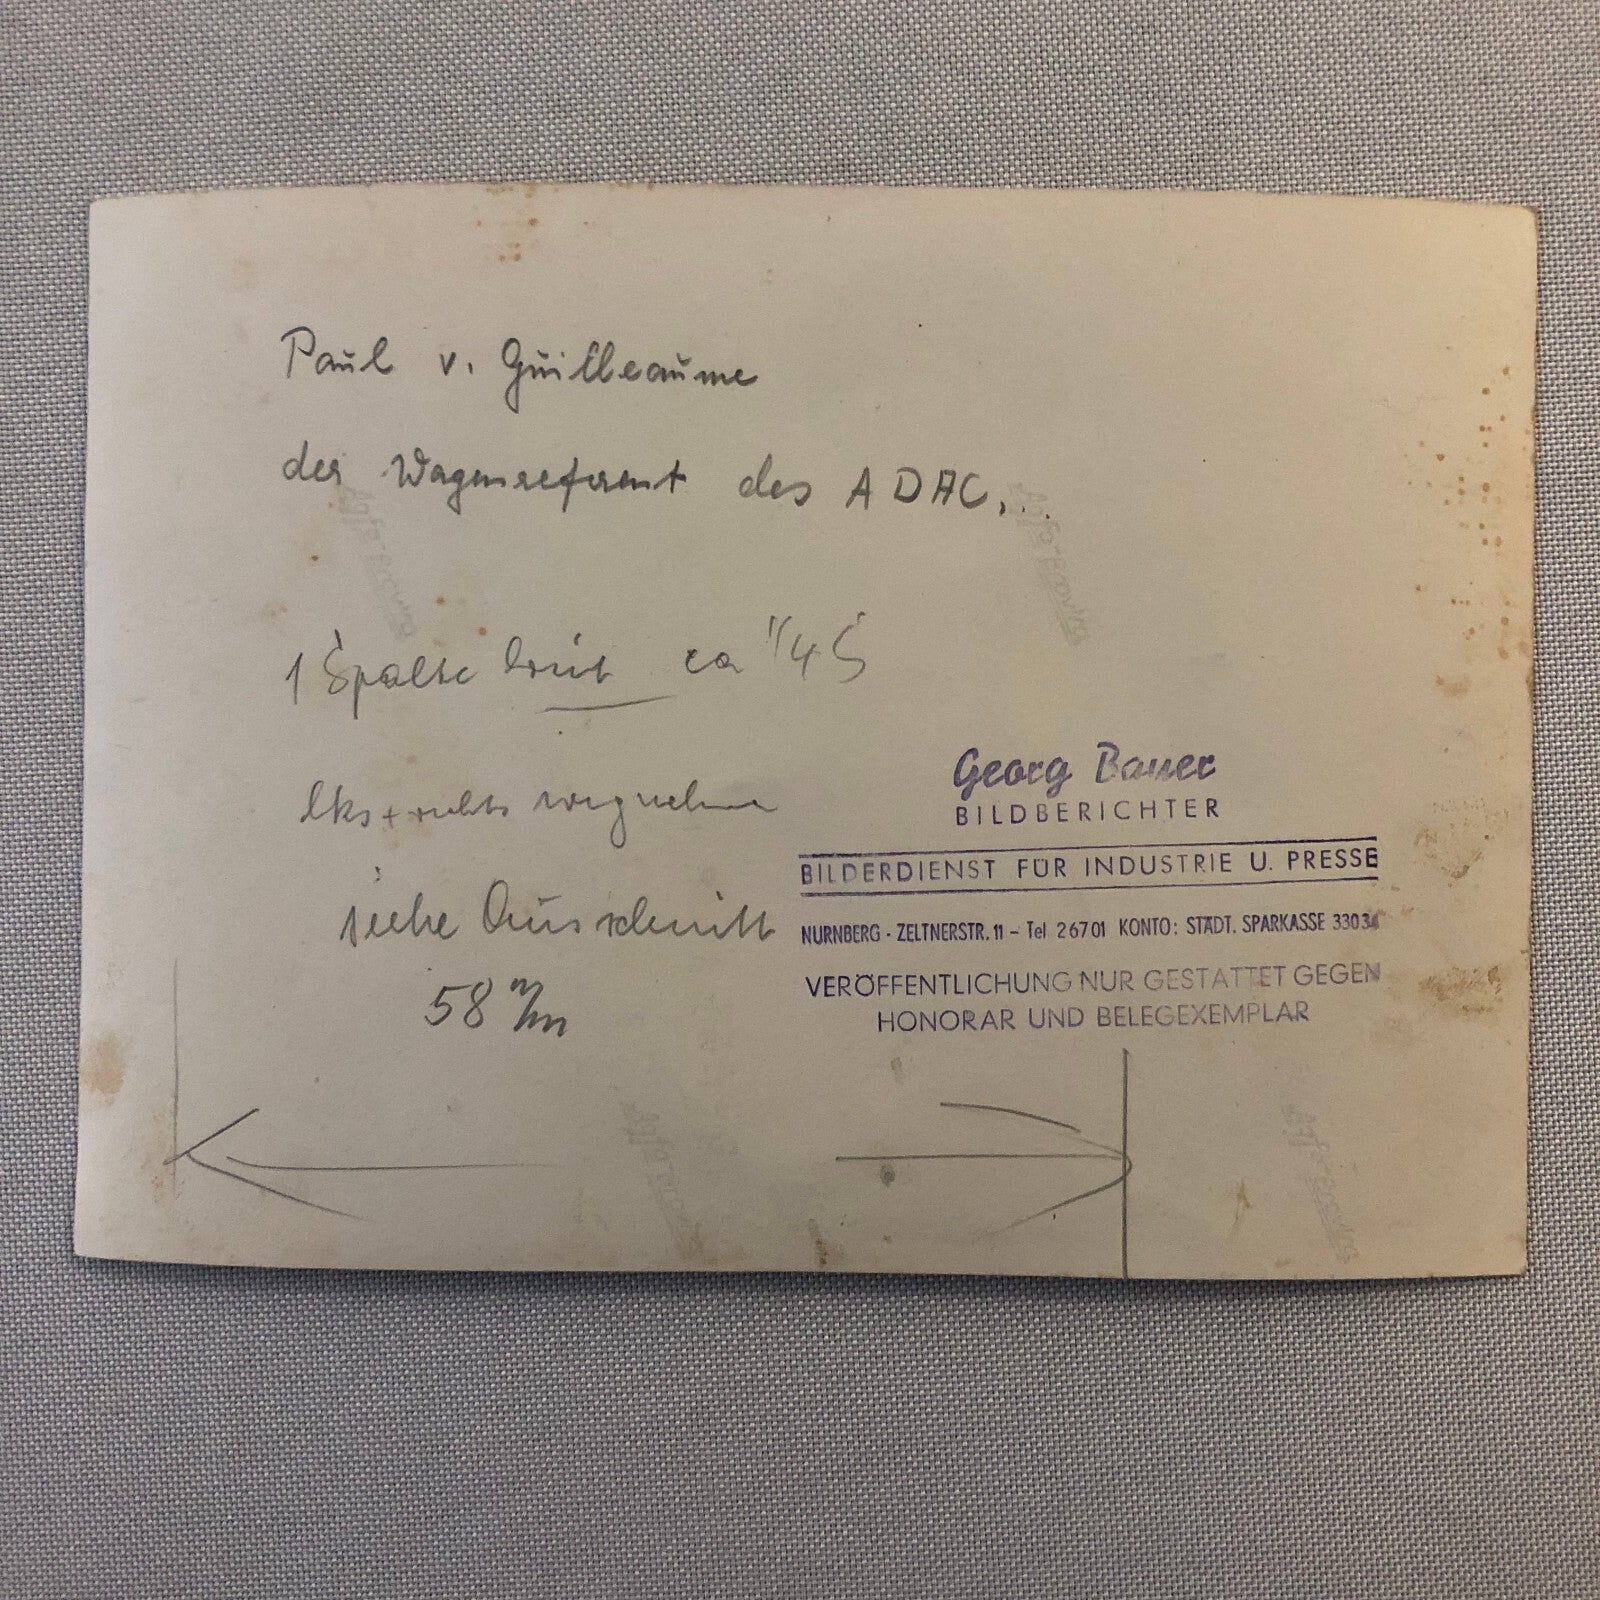 Paul v. Guilleaume
der Wagenreferent des ADAC...
1 Spalte breit ca 1/4 S
lks + rechts wegnehmen
siehe Ausschnitt
58 m/m
Georg Bauer
BILDBERICHTER
BILDERDIENST FÜR INDUSTRIE U. PRESSE
NÜRNBERG · ZELTNERSTR. 11 – Tel 26701 KONTO: STÄDT. SPARKASSE 33034
VERÖFFENTLICHUNG NUR GESTATTET GEGEN
HONORAR UND BELEGEXEMPLAR
Agfa-Brovira
Agfa-Brovira
Agfa-Brovira
Agfa-Brovira